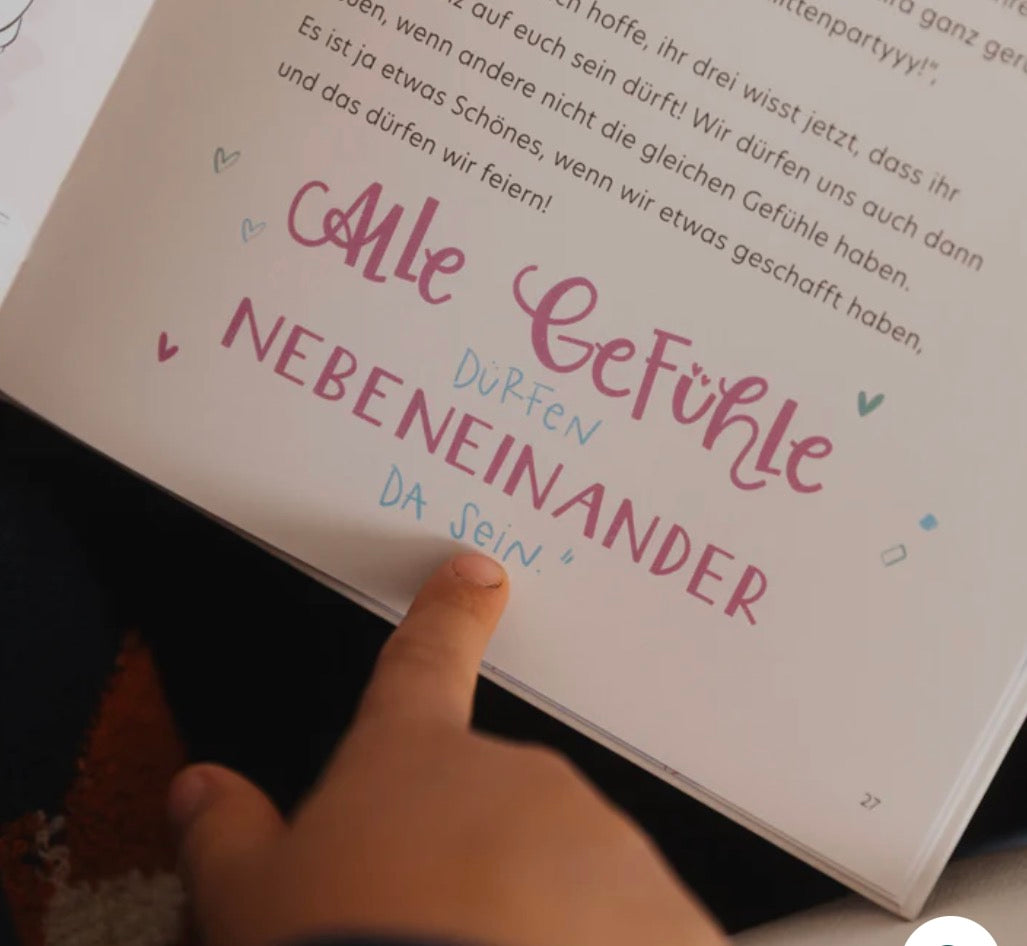 ganz
ittenpartyyy!",
hoffe, ihr drei wisst jetzt, dass ihr
auf euch sein dürft! Wir dürfen uns auch dann
wenn andere nicht die gleichen Gefühle haben.
Es ist ja etwas Schönes, wenn wir etwas geschafft haben,
und das dürfen wir feiern!
Alle Gefühle
DÜRFEN
NEBENEINANDER
DA SEIN."
27